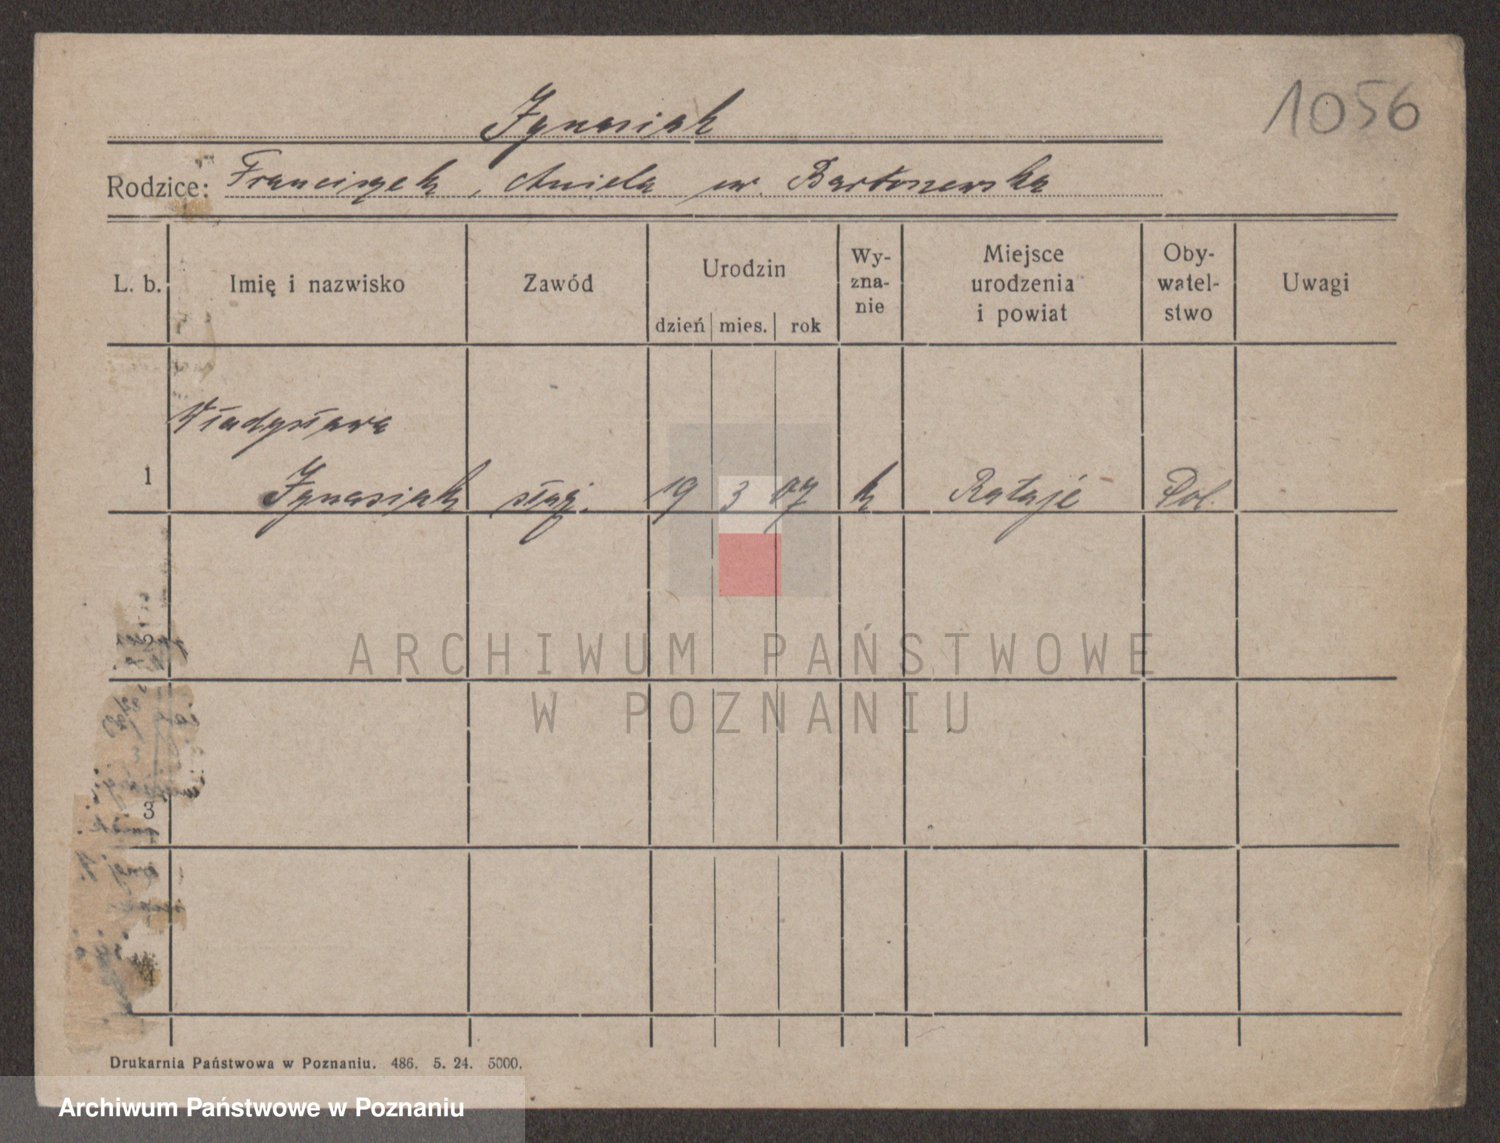 1056
Ignasiak
Rodzice: Franciszek, Aniela ur. Bartoszewska
L. b.
Imię i nazwisko
Zawód
Urodzin
dzień mies. rok
Wy-
zna-
nie
Miejsce
urodzenia
i powiat
Oby-
watel-
stwo
Uwagi
Władysława
1 Ignasiak służ. 19 3 07 k Rataje Pol.
2
3
4
ARCHIWUM PAŃSTWOWE
W POZNANIU
Drukarnia Państwowa w Poznaniu. 486. 5. 24. 5000.
Archiwum Państwowe w Poznaniu